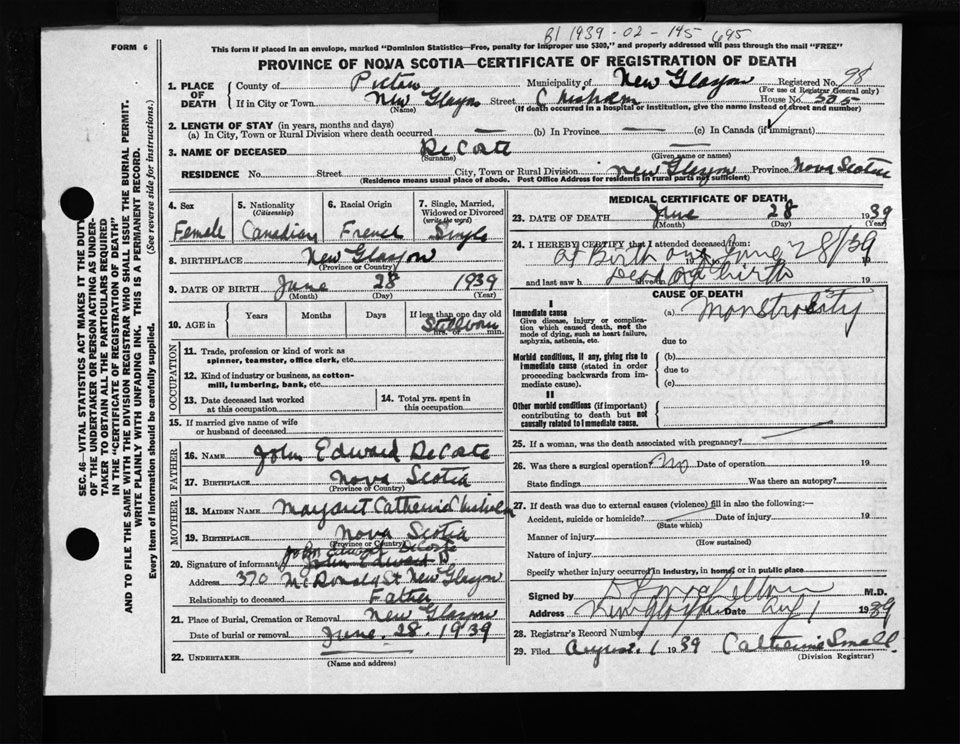 B1 1939-02-195 695
FORM 6
This form if placed in an envelope, marked "Dominion Statistics—Free, penalty for improper use $300," and properly addressed will pass through the mail "FREE"
PROVINCE OF NOVA SCOTIA—CERTIFICATE OF REGISTRATION OF DEATH
1. PLACE OF DEATH
County of Pictou Municipality of New Glasgow Registered No. 98
(For use of Registrar General only)
If in City or Town New Glasgow Street Chisholm House No. 505
(Name) (If death occurred in a hospital or institution, give the name instead of street and number)
2. LENGTH OF STAY (in years, months and days)
(a) In City, Town or Rural Division where death occurred — (b) In Province — (c) In Canada (if immigrant)
3. NAME OF DECEASED DeCoste
(Surname) (Given name or names)
RESIDENCE No. Street City, Town or Rural Division New Glasgow Province Nova Scotia
(Residence means usual place of abode. Post Office Address for residents in rural parts not sufficient)
4. Sex
Female
5. Nationality
(Citizenship)
Canadian
6. Racial Origin
French
7. Single, Married, Widowed or Divorced
(write the word)
Single
8. BIRTHPLACE New Glasgow
(Province or Country)
9. DATE OF BIRTH June 28 1939
(Month) (Day) (Year)
10. AGE in
Years Months Days If less than one day old
Stillborn
hrs. or min.
OCCUPATION
11. Trade, profession or kind of work as
spinner, teamster, office clerk, etc.
12. Kind of industry or business, as cotton-
mill, lumbering, bank, etc.
13. Date deceased last worked
at this occupation
14. Total yrs. spent in
this occupation
15. If married give name of wife
or husband of deceased
FATHER
16. NAME John Edward DeCoste
17. BIRTHPLACE Nova Scotia
(Province or Country)
MOTHER
18. MAIDEN NAME Margaret Catherine Chisholm
19. BIRTHPLACE Nova Scotia
(Province or Country)
John Edward DeCoste
20. Signature of informant John Edward D
Address 370 McDonald St New Glasgow
Relationship to deceased Father
21. Place of Burial, Cremation or Removal New Glasgow
Date of burial or removal June. 28. 1939
22. UNDERTAKER
(Name and address)
MEDICAL CERTIFICATE OF DEATH
23. DATE OF DEATH June 28 1939
(Month) (Day) (Year)
24. I HEREBY CERTIFY that I attended deceased from:
at Birth on June 28/39
19
Dead at birth
and last saw h alive on 19
CAUSE OF DEATH
I
Immediate cause
Give disease, injury or complica-
tion which caused death, not the
mode of dying, such as heart failure,
asphyxia, asthenia, etc.
(a) Monstrosity
due to
Morbid conditions, if any, giving rise to
immediate cause (stated in order
proceeding backwards from im-
mediate cause).
(b)
due to
(c)
II
Other morbid conditions (if important)
contributing to death but not
causally related to immediate cause.
25. If a woman, was the death associated with pregnancy?
26. Was there a surgical operation? No Date of operation 19
State findings Was there an autopsy?
27. If death was due to external causes (violence) fill in also the following:
Accident, suicide or homicide? Date of injury 19
(State which)
Manner of injury
(How sustained)
Nature of injury
Specify whether injury occurred in industry, in home, or in public place
Signed by M.D.
Address New Glasgow Date Aug 1 1939
28. Registrar's Record Number
29. Filed August. 1 1939 Catherine Small.
(Division Registrar)
SEC. 46—VITAL STATISTICS ACT MAKES IT THE DUTY
OF THE UNDERTAKER OR PERSON ACTING AS UNDER-
TAKER TO OBTAIN ALL THE PARTICULARS REQUIRED
IN THE "CERTIFICATE OF REGISTRATION OF DEATH"
AND TO FILE THE SAME WITH THE DIVISION REGISTRAR WHO SHALL ISSUE THE BURIAL PERMIT.
WRITE PLAINLY WITH UNFADING INK. THIS IS A PERMANENT RECORD.
Every item of Information should be carefully supplied. (See reverse side for instructions.)